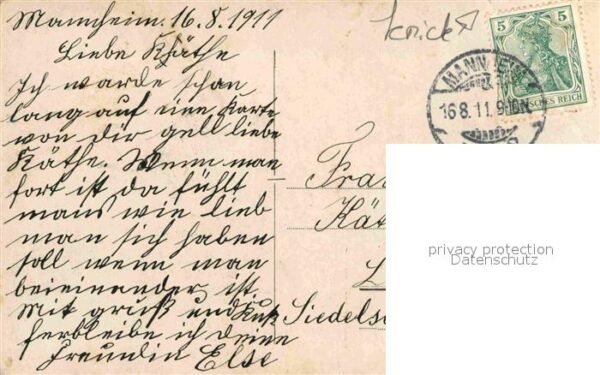 Mannheim. 16.8.1911
Liebe Khäthe
Ich warde schon
lang auf eine Karte
von dir gell liebe
Käthe. Wenn man
fort ist da fühlt
mans wie lieb
man sich haben
soll wenn man
beieinander ist
Mit gruß und Kuß
ferbleibe ich deine
Freundin Else
knick
5 5
DEUTSCHES REICH
MANNHEIM
16 8.11. 9-10N
Fra
Kät
L
Siedels
privacy protection
Datenschutz